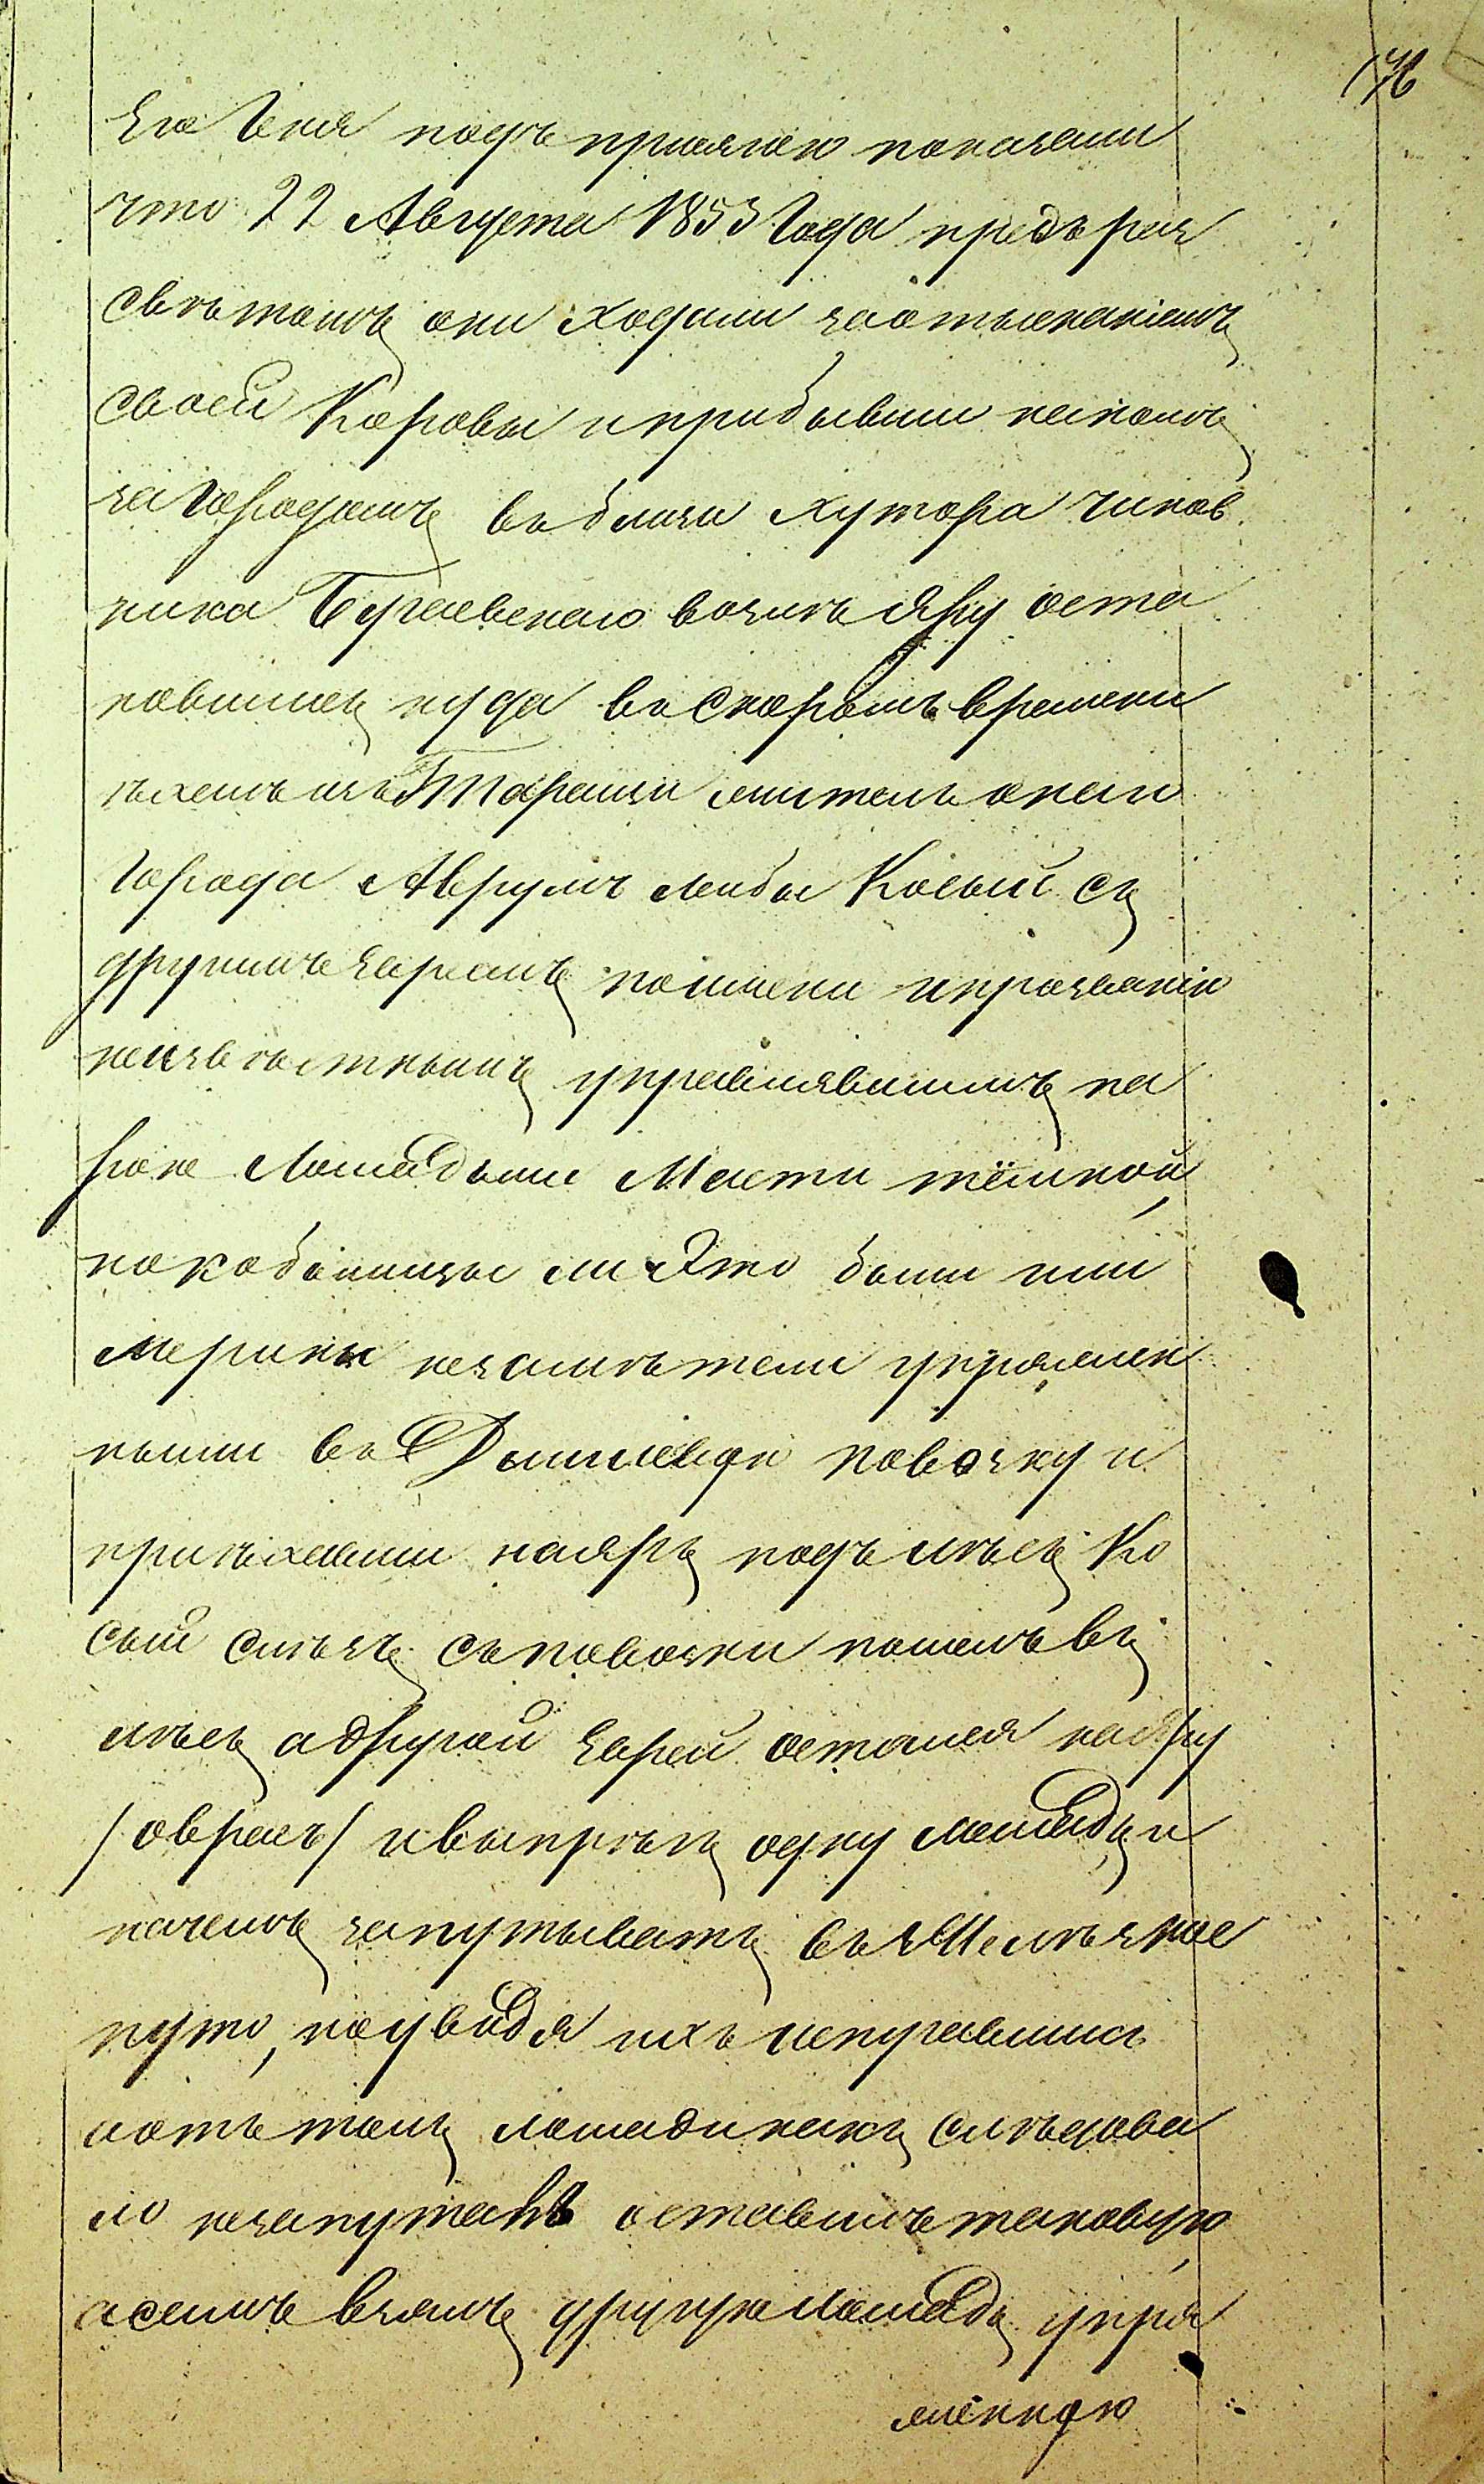 176
Его Iеня подъ присягою показали
что 22 Августа 1853 Года предъ раз
свѣтомъ они ходили заотысканіемъ
своей Коровы иприбывши пешкомъ
заГородомъ въблизи хутора чинов
ника Бураевскаго возлѣ Яру оста
новились куда въскоромъ времени
ѣхалъ изъ Таращи житель онаго
Города Аврумъ Лейба Косый съ
другимъ Евреемъ поимени ипрозванію
неизвѣстнымъ управлявшимъ па
рою Лошадьми Масти тёмной,
нокобылицы ли Это были или
мерины незамѣтили упряжен
ными въ Дышлевую повозку и
приѣхавши наяръ подълѣсъ Ко
сый слѣзъ съповозки пошелъ въ
лѣсъ адругой Еврей остался наяру
/оврагъ/ ивыпрягъ одну лошадь и
началъ запутывать въ Желѣзное
путо, ноувидя ихъ испугавшись
иотъ толь лошади какъ слѣдова
ло незапуталъ оставилъ таковую
асамъ взялъ другую лошадь упря
женную